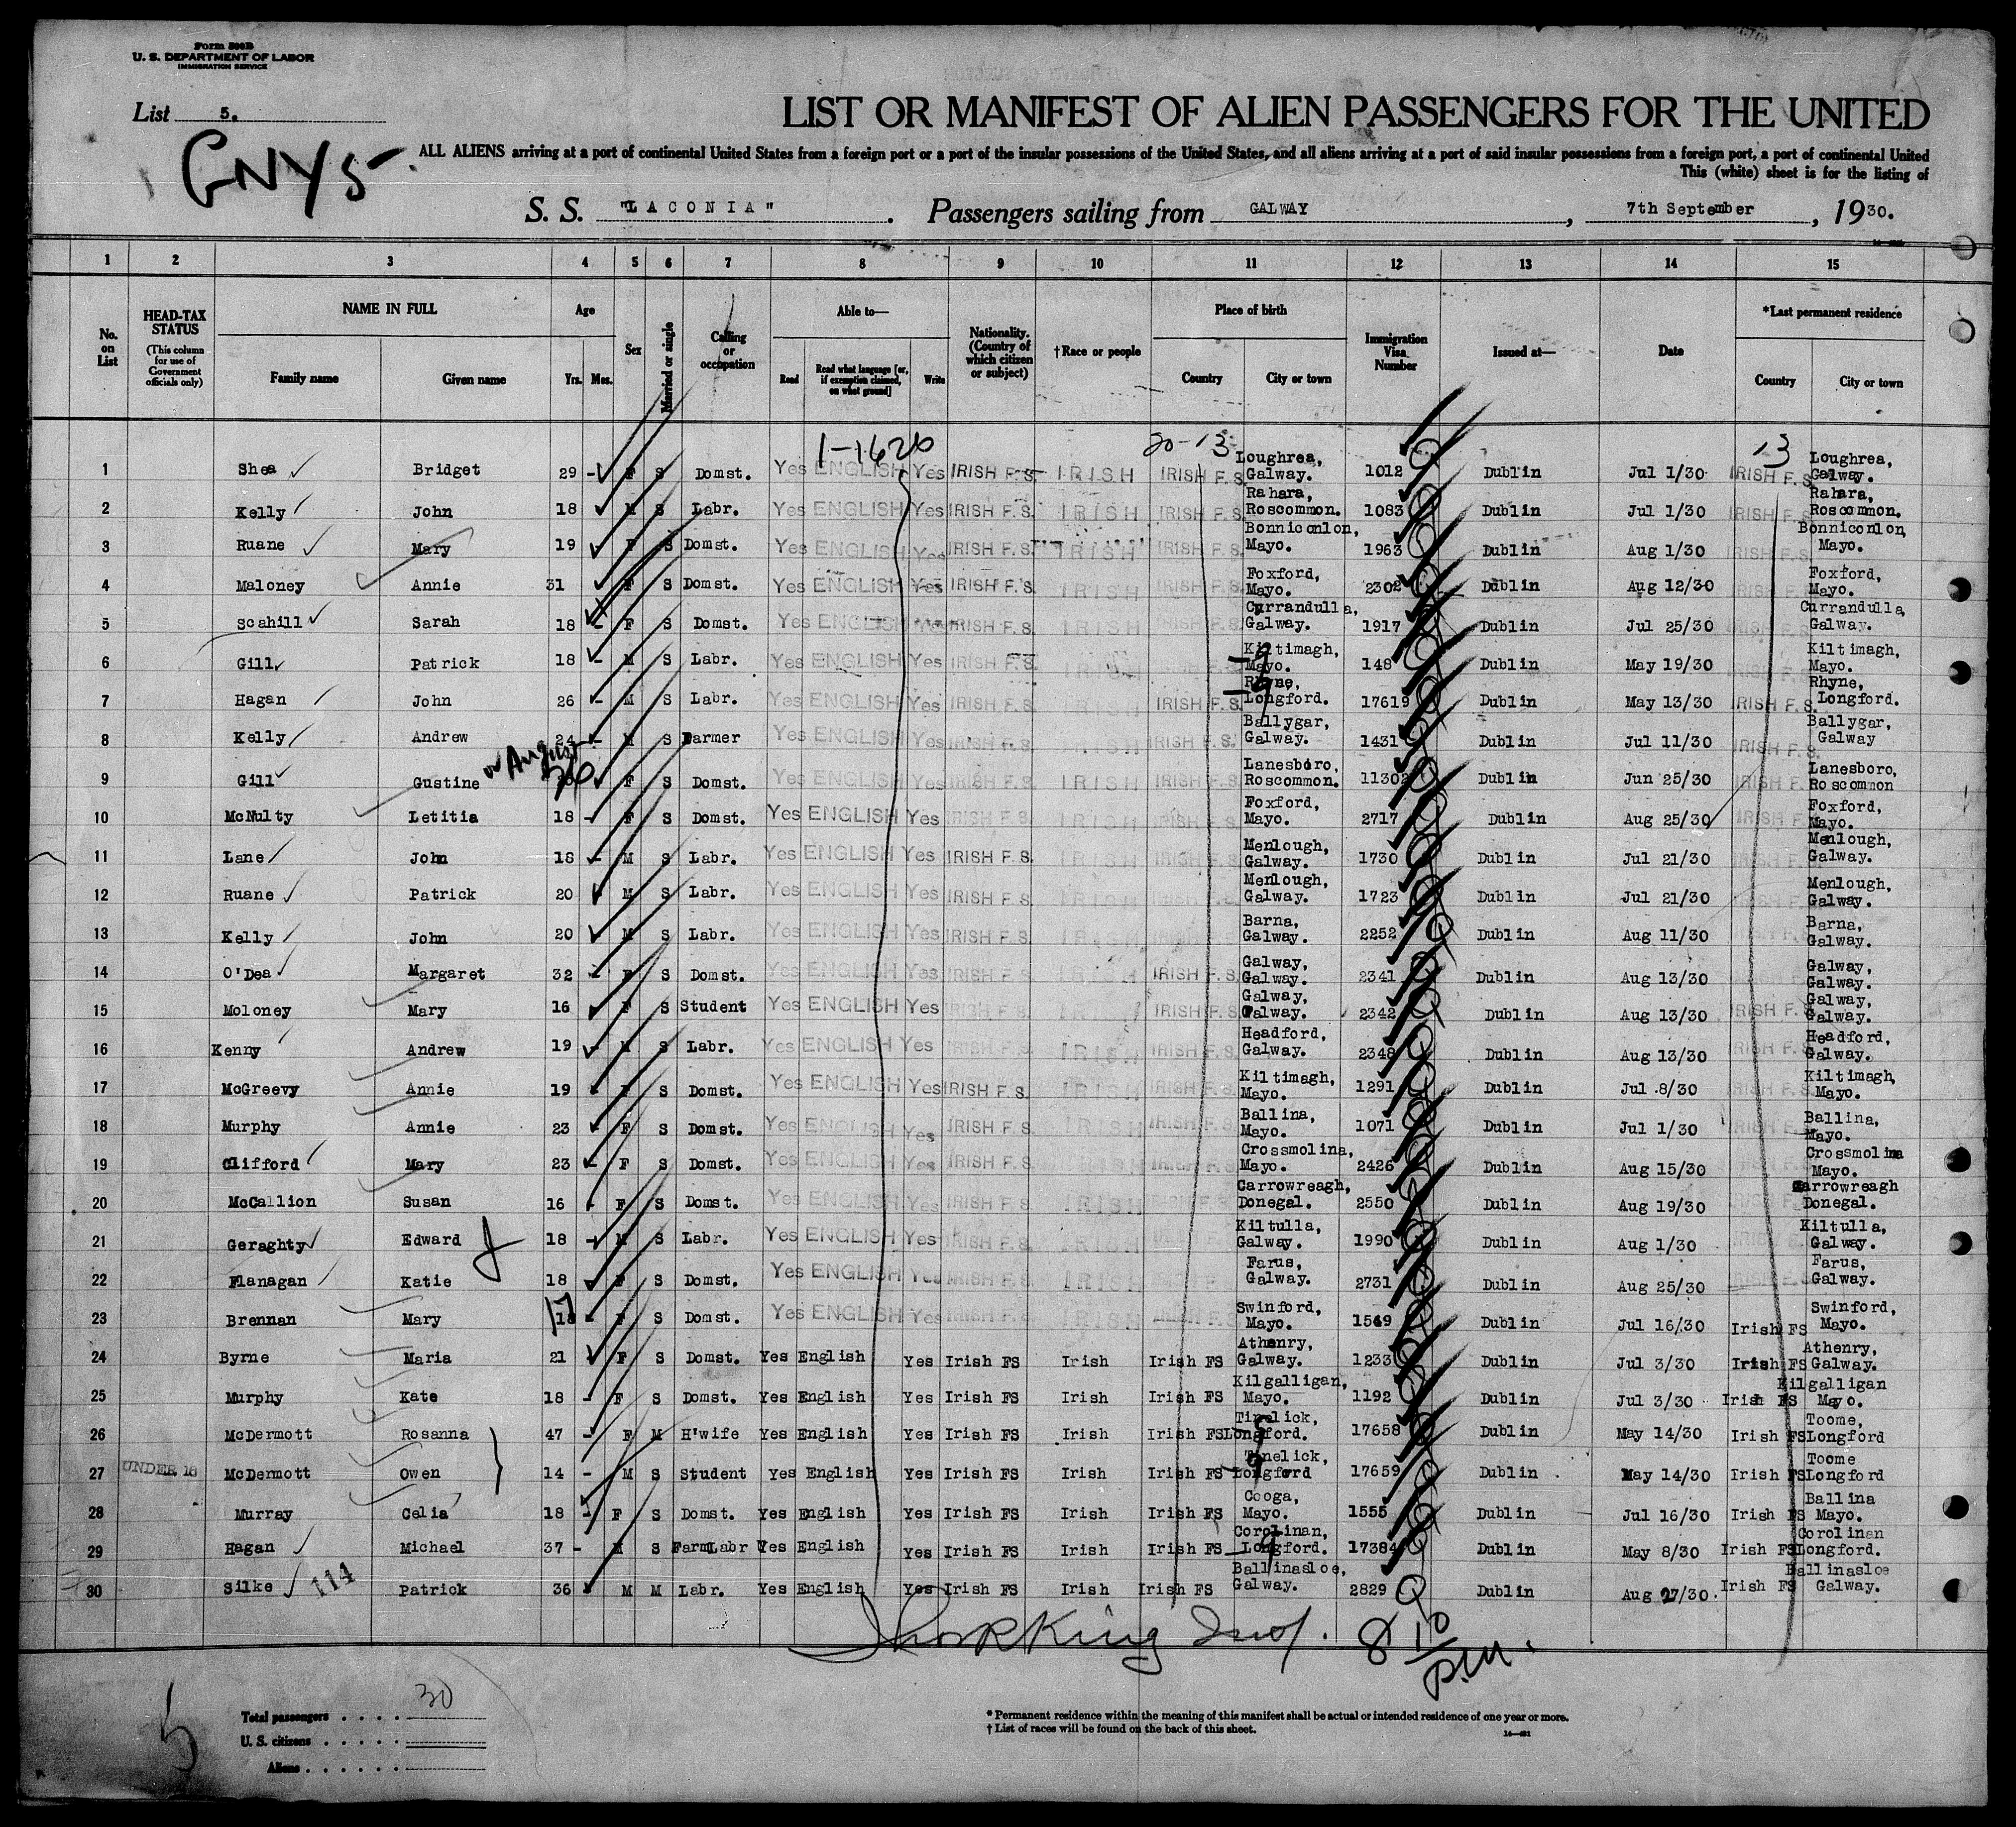 Form 500B
U. S. DEPARTMENT OF LABOR
IMMIGRATION SERVICE
List 5.
GNY5
LIST OR MANIFEST OF ALIEN PASSENGERS FOR THE UNITED
ALL ALIENS arriving at a port of continental United States from a foreign port or a port of the insular possessions of the United States, and all aliens arriving at a port of said insular possessions from a foreign port, a port of continental United
This (white) sheet is for the listing of
S. S. "LACONIA". Passengers sailing from GALWAY, 7th September, 1930.
1 2 3 4 5 6 7 8 9 10 11 12 13 14 15
No. on List
HEAD-TAX STATUS (This column for use of Government officials only)
NAME IN FULL Family name Given name
Age Yrs. Mos.
Sex
Married or single
Calling or occupation
Able to— Read Read what language [or, if exemption claimed, on what ground] Write
Nationality. (Country of which citizen or subject)
†Race or people
Place of birth Country City or town
Immigration Visa Number
Issued at—
Date
*Last permanent residence Country City or town
1-1620 20-13 13
1 Shea Bridget 29 - F S Domst. Yes ENGLISH Yes IRISH F.S. IRISH IRISH F.S. Loughrea, Galway. 1012 Dublin Jul 1/30 IRISH F.S. Loughrea, Galway.
2 Kelly John 18 M S Labr. Yes ENGLISH Yes IRISH F.S. IRISH IRISH F.S. Rahara, Roscommon. 1083 Dublin Jul 1/30 IRISH F.S. Rahara, Roscommon.
3 Ruane Mary 19 F S Domst. Yes ENGLISH Yes IRISH F.S. IRISH IRISH F.S. Bonniconlon, Mayo. 1963 Dublin Aug 1/30 IRISH F.S. Bonniconlon Mayo.
4 Maloney Annie 31 F S Domst. Yes ENGLISH Yes IRISH F.S. IRISH IRISH F.S. Foxford, Mayo. 2302 Dublin Aug 12/30 IRISH F.S. Foxford, Mayo.
5 Scahill Sarah 18 - F S Domst. Yes ENGLISH Yes IRISH F.S. IRISH IRISH F.S. Currandulla, Galway. 1917 Dublin Jul 25/30 IRISH F.S. Currandulla, Galway.
6 Gill Patrick 18 - M S Labr. Yes ENGLISH Yes IRISH F.S. IRISH Kiltimagh, Mayo. 148 Dublin May 19/30 Kiltimagh, Mayo.
7 Hagan John 26 - M S Labr. Yes ENGLISH Yes IRISH F.S. IRISH IRISH F.S. Rhyne, Longford. 17619 Dublin May 13/30 IRISH F.S. Rhyne, Longford.
8 Kelly Andrew 24 M S Farmer Yes ENGLISH Yes IRISH F.S. IRISH IRISH F.S. Ballygar, Galway. 1431 Dublin Jul 11/30 IRISH F.S. Ballygar, Galway
9 Gill Gustine F S Domst. Yes ENGLISH Yes IRISH F.S. IRISH IRISH F.S. Lanesboro, Roscommon. 11302 Dublin Jun 25/30 IRISH F.S. Lanesboro, Roscommon
10 McNulty Letitia 18 - F S Domst. Yes ENGLISH Yes IRISH F.S. IRISH IRISH F.S. Foxford, Mayo. 2717 Dublin Aug 25/30 IRISH F.S. Foxford, Mayo.
11 Lane John 18 - M S Labr. Yes ENGLISH Yes IRISH F.S. IRISH IRISH F.S. Menlough, Galway. 1730 Dublin Jul 21/30 Menlough, Galway.
12 Ruane Patrick 20 M S Labr. Yes ENGLISH Yes IRISH F.S. IRISH Menlough, Galway. 1723 Dublin Jul 21/30 Menlough, Galway.
13 Kelly John 20 M S Labr. Yes ENGLISH Yes IRISH F.S. Barna, Galway. 2252 Dublin Aug 11/30 Barna, Galway.
14 O'Dea Margaret 32 - F S Domst. Yes ENGLISH Yes IRISH F.S. IRISH IRISH F.S. Galway, Galway. 2341 Dublin Aug 13/30 Galway, Galway.
15 Moloney Mary 16 F S Student Yes ENGLISH Yes IRISH F.S. IRISH IRISH F.S. Galway, Galway. 2342 Dublin Aug 13/30 IRISH F.S. Galway, Galway.
16 Kenny Andrew 19 M S Labr. Yes ENGLISH Yes IRISH F.S. IRISH IRISH F.S. Headford, Galway. 2348 Dublin Aug 13/30 IRISH F.S. Headford, Galway.
17 McGreevy Annie 19 F S Domst. Yes ENGLISH Yes IRISH F.S. IRISH IRISH F.S. Kiltimagh, Mayo. 1291 Dublin Jul 8/30 IRISH F.S. Kiltimagh, Mayo.
18 Murphy Annie 23 F S Domst. Yes ENGLISH Yes IRISH F.S. IRISH IRISH F.S. Ballina, Mayo. 1071 Dublin Jul 1/30 Ballina, Mayo.
19 Clifford Mary 23 - F S Domst. Yes ENGLISH Yes IRISH F.S. IRISH F.S. Crossmolina, Mayo. 2426 Dublin Aug 15/30 Crossmolina Mayo.
20 McCallion Susan 16 F S Domst. Yes ENGLISH Yes IRISH F.S. IRISH Carrowreagh, Donegal. 2550 Dublin Aug 19/30 Carrowreagh Donegal.
21 Geraghty Edward 18 - M S Labr. Yes ENGLISH Yes IRISH F.S. IRISH Kiltulla, Galway. 1990 Dublin Aug 1/30 Kiltulla, Galway.
22 Flanagan Katie 18 F S Domst. Yes ENGLISH Yes IRISH F.S. IRISH Farus, Galway. 2731 Dublin Aug 25/30 Farus, Galway.
23 Brennan Mary 17 18 F S Domst. Yes ENGLISH Yes IRISH F.S. IRISH IRISH F.S. Swinford, Mayo. 1549 Dublin Jul 16/30 Irish FS Swinford, Mayo.
24 Byrne Maria 21 F S Domst. Yes English Yes Irish FS Irish Irish FS Athenry, Galway. 1233 Dublin Jul 3/30 Irish FS Athenry, Galway.
25 Murphy Kate 18 - F S Domst. Yes English Yes Irish FS Irish Irish FS Kilgalligan, Mayo. 1192 Dublin Jul 3/30 Irish FS Kilgalligan Mayo.
26 McDermott Rosanna 47 - F M H'wife Yes English Yes Irish FS Irish Irish FS Tinelick, Longford. 17658 Dublin May 14/30 Irish FS Toome, Longford
27 UNDER 16 McDermott Owen 14 - M S Student Yes English Yes Irish FS Irish Irish FS Tenelick, Longford 17659 Dublin May 14/30 Irish FS Toome Longford
28 Murray Celia 18 - F S Domst. Yes English Yes Irish FS Irish Irish FS Cooga, Mayo. 1555 Dublin Jul 16/30 Irish FS Ballina Mayo.
29 Hagan Michael 37 - M S FarmLabr Yes English Yes Irish FS Irish Irish FS Corolinan, Longford. 17384 Dublin May 8/30 Irish FS Corolinan Longford.
30 Silke 114 Patrick 36 M M Labr. Yes English Yes Irish FS Irish Irish FS Ballinasloe, Galway. 2829 Dublin Aug 27/30. Irish FS Ballinasloe Galway.
8 10 P.M.
5
Total passengers . . . . 30
U. S. citizens . . . . .
Aliens . . . . . .
* Permanent residence within the meaning of this manifest shall be actual or intended residence of one year or more.
† List of races will be found on the back of this sheet.